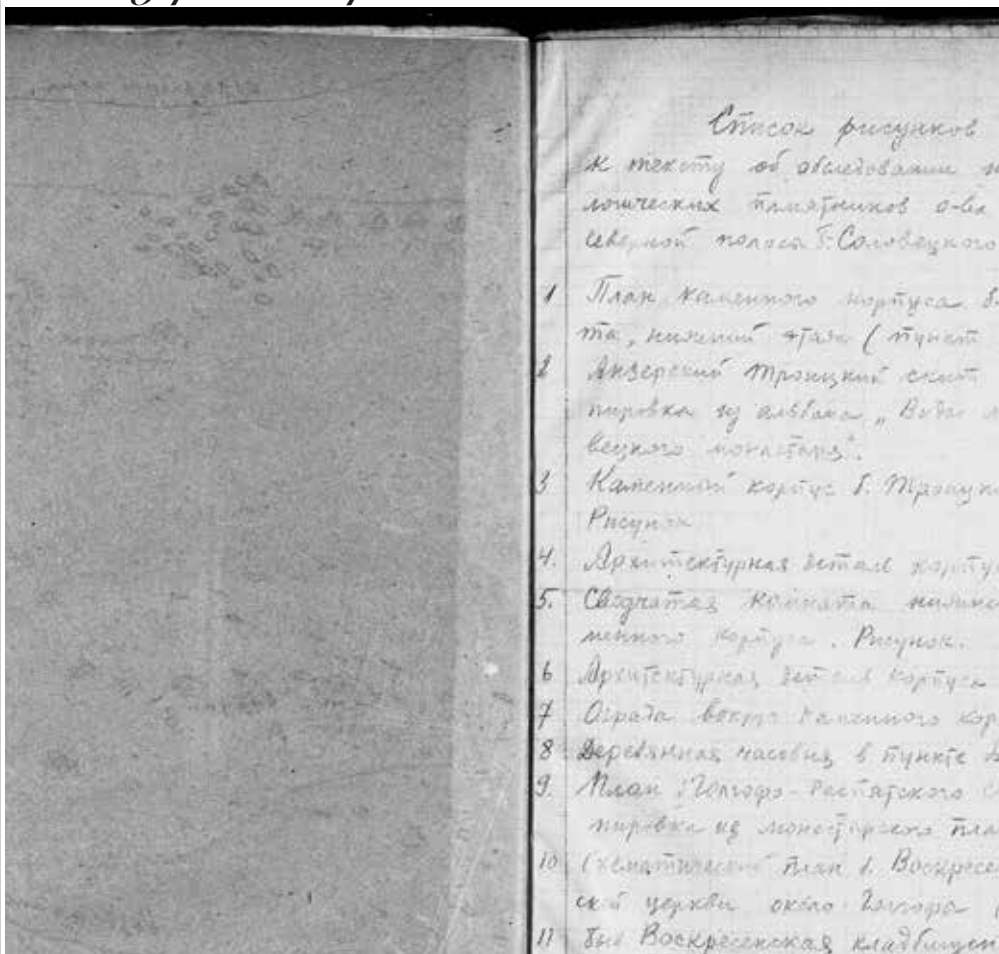 Список рисунков
к тексту об обследовании
логических памятников о-ва
северной полосы б. Соловецкого
1 План каменного корпуса б.
та, нижний этаж (пункт
2 Анзерский Троицкий скит
пировка из альбома „Виды
вецкого монастыря".
3 Каменный корпус б. Троицк
Рисунок
4. Архитектурная деталь корпу
5. Сводчатая комната нижне
менного корпуса. Рисунок.
6 Архитектурная деталь корпуса
7 Ограда вокруг каменного кор
8 Деревянная часовня в пункте
9. План Голгофо-Распятского
пировка из монастырского пла
10 Схематический план б. Воскресен
ской церкви около Голгофы
11 Воскресенская кладбищен